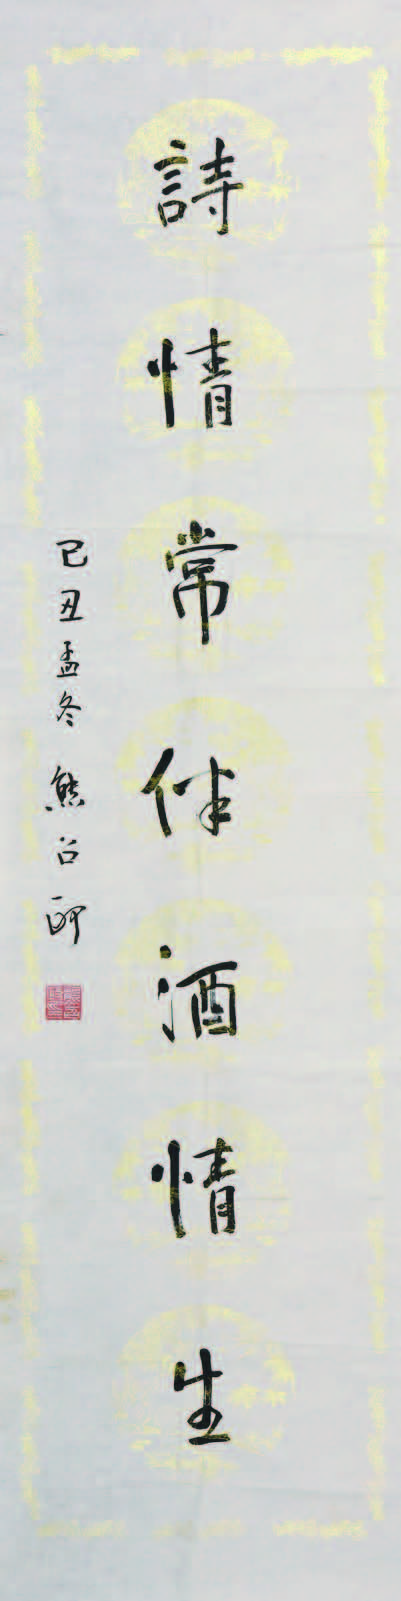 詩情常伴酒情生
己丑孟冬 熊召政